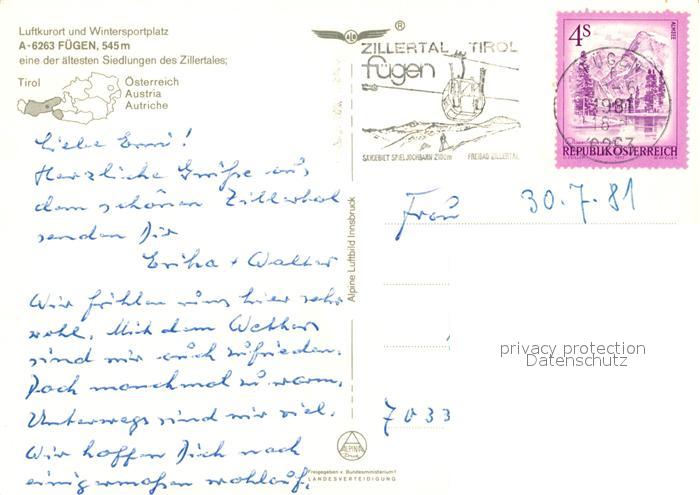 Luftkurort und Wintersportplatz
A-6263 FÜGEN, 545 m
eine der ältesten Siedlungen des Zillertales;
Tirol
Österreich
Austria
Autriche
®
ZILLERTAL TIROL
fügen
SKIGEBIET SPIELJOCHBAHN 2100m FREIBAD ZILLERTAL
4S
ALMSEE
REPUBLIK ÖSTERREICH
FÜGEN
1981
6263
Liebe Erni!
Herzliche Grüße aus
dem schönen Zillertal
senden Dir
Erika + Walter
Wir fühlen uns hier sehr
wohl. Mit dem Wetter
sind wir auch zufrieden.
Doch manchmal zu warm.
Unterwegs sind wir viel.
Wir hoffen Dich nach
einigermaßen wohlauf.
Alpine Luftbild Innsbruck
30.7.81
Frau
privacy protection
Datenschutz
7033
ALPINE
Druck
Freigegeben v. Bundesministerium f.
LANDESVERTEIDIGUNG